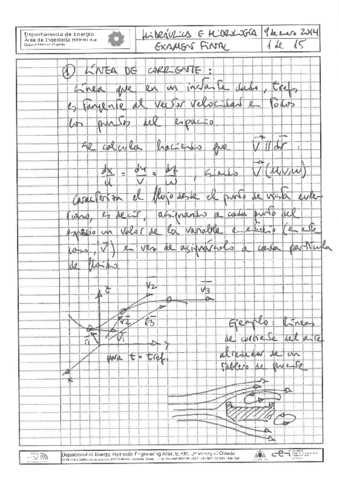 Departamento de Energía
Área de Ingeniería Hidráulica
Universidad de Oviedo
HIDRÁULICA E HIDROLOGÍA
EXAMEN FINAL
9 enero 2014
1 de 15
① LÍNEA DE CORRIENTE:
Línea que en un instante dado, tref,
es tangente al vector velocidad en todos
los puntos del espacio.
Se calcula haciendo que V // dr :
dx/u = dy/v = dz/w , siendo V (u,v,w)
Caracteriza el flujo desde el punto de vista eule-
riano, es decir, asignando a cada punto del
espacio un valor de la variable a estudio (en este
caso, V) en vez de asignárselo a cada partícula
de fluido.
z
V2
V3
r2
r3
r1
V1
y
x
para t = tref
Ejemplo: líneas
de corriente del aire
alrededor de un
tablero de puente
Department of Energy, Hydraulic Engineering Area, University of Oviedo